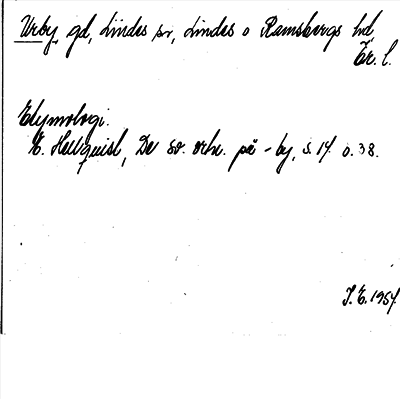 Urby, gd, Lindes sn, Lindes o Ramsbergs hd,
Ör. l.
Etymologi.
E. Hellquist, De sv. ortn. på -by, s. 17 o. 38.
J. E. 1957.